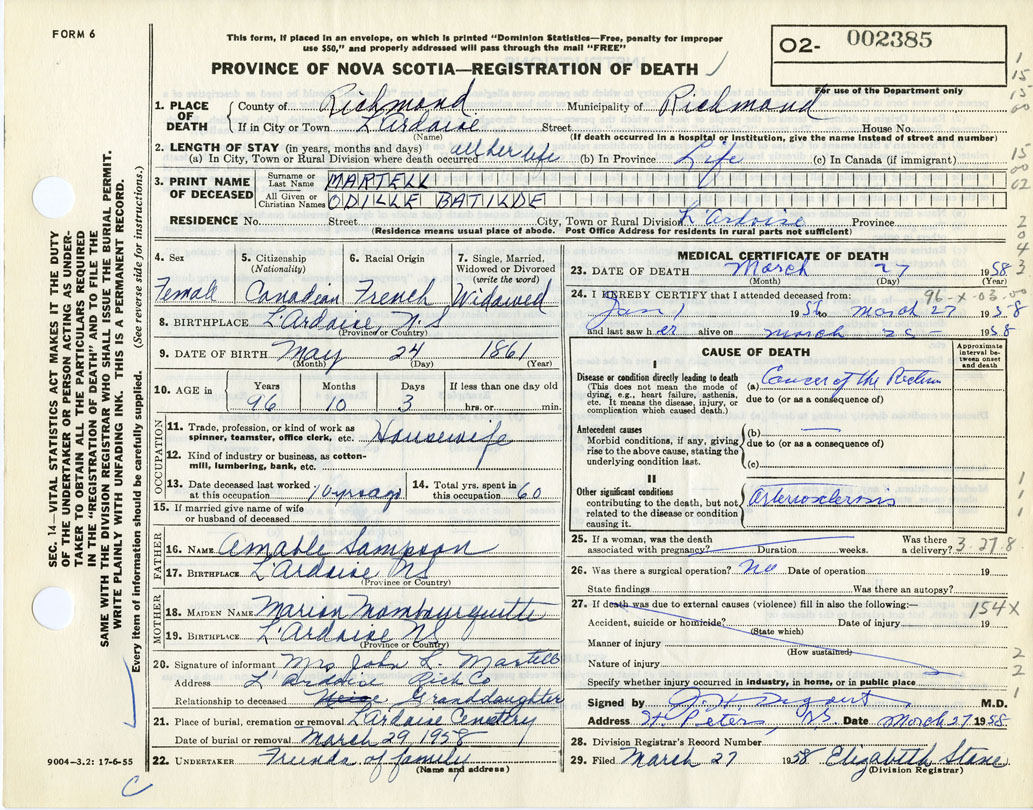 FORM 6
This form, if placed in an envelope, on which is printed "Dominion Statistics—Free, penalty for improper
use $50," and properly addressed will pass through the mail "FREE"
O2- 002385
For use of the Department only
PROVINCE OF NOVA SCOTIA—REGISTRATION OF DEATH
1. PLACE OF DEATH County of Richmond Municipality of Richmond
If in City or Town L'Ardoise Street House No.
(Name) (If death occurred in a hospital or institution, give the name instead of street and number)
2. LENGTH OF STAY (in years, months and days)
(a) In City, Town or Rural Division where death occurred all her life (b) In Province Life (c) In Canada (if immigrant)
3. PRINT NAME OF DECEASED
Surname or Last Name MARTELL
All Given or Christian Names ODILLE BATILDE
RESIDENCE No. Street City, Town or Rural Division L'Ardoise Province
(Residence means usual place of abode. Post Office Address for residents in rural parts not sufficient)
4. Sex Female
5. Citizenship (Nationality) Canadian
6. Racial Origin French
7. Single, Married, Widowed or Divorced (write the word) Widowed
8. BIRTHPLACE L'Ardoise, N S
(Province or Country)
9. DATE OF BIRTH May 24 1861
(Month) (Day) (Year)
10. AGE in Years 96 Months 10 Days 3 If less than one day old hrs. or min.
OCCUPATION
11. Trade, profession, or kind of work as spinner, teamster, office clerk, etc. Housewife
12. Kind of industry or business, as cotton-mill, lumbering, bank, etc.
13. Date deceased last worked at this occupation 10 yrs ago
14. Total yrs. spent in this occupation 60
15. If married give name of wife or husband of deceased
FATHER
16. NAME Amable Sampson
17. BIRTHPLACE L'Ardoise NS
(Province or Country)
MOTHER
18. MAIDEN NAME Marion Mombourquette
19. BIRTHPLACE L'Ardoise NS
(Province or Country)
20. Signature of informant Mrs John L. Martell
Address L'Ardoise Rich Co
Relationship to deceased Granddaughter
21. Place of burial, cremation or removal L'Ardoise Cemetery
Date of burial or removal March 29 1958
22. UNDERTAKER Friends of family
(Name and address)
9004—3.2: 17-6-55
C
SEC. 14—VITAL STATISTICS ACT MAKES IT THE DUTY
OF THE UNDERTAKER OR PERSON ACTING AS UNDER-
TAKER TO OBTAIN ALL THE PARTICULARS REQUIRED
IN THE "REGISTRATION OF DEATH" AND TO FILE THE
SAME WITH THE DIVISION REGISTRAR WHO SHALL ISSUE THE BURIAL PERMIT.
WRITE PLAINLY WITH UNFADING INK. THIS IS A PERMANENT RECORD.
Every item of information should be carefully supplied. (See reverse side for instructions.)
MEDICAL CERTIFICATE OF DEATH
23. DATE OF DEATH March 27 1958
(Month) (Day) (Year)
24. I HEREBY CERTIFY that I attended deceased from: 96-x-03-00
Jan 1 195 to March 27 1958
and last saw her alive on March 1958
CAUSE OF DEATH
Approximate interval between onset and death
I
Disease or condition directly leading to death
(This does not mean the mode of dying, e.g., heart failure, asthenia, etc. It means the disease, injury, or complication which caused death.)
(a) Cancer of the Rectum
due to (or as a consequence of)
Antecedent causes
Morbid conditions, if any, giving rise to the above cause, stating the underlying condition last.
(b) —
due to (or as a consequence of)
(c)
II
Other significant conditions
contributing to the death, but not related to the disease or condition causing it.
Arteriosclerosis
25. If a woman, was the death associated with pregnancy? Duration weeks. Was there a delivery? 3-27-8
26. Was there a surgical operation? No Date of operation 19
State findings Was there an autopsy?
27. If death was due to external causes (violence) fill in also the following:— 154X
Accident, suicide or homicide? Date of injury 19
(State which)
Manner of injury
(How sustained)
Nature of injury
Specify whether injury occurred in industry, in home, or in public place
Signed by M.D.
Address St Peters, NS Date March 27 1958
28. Division Registrar's Record Number
29. Filed March 27 1958 Elizabeth Stone
(Division Registrar)
1
15
15
00
15
00
02
2
0
4
3
1
1
1
2
2
1